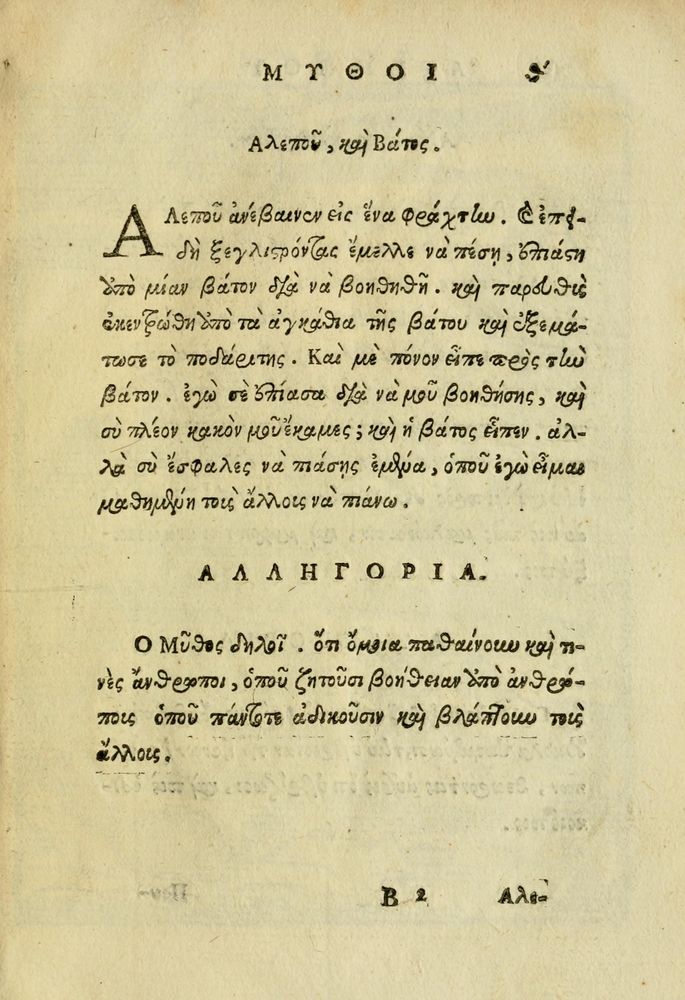 ΜΥΘΟΙ
Αλεποῦ, καὶ Βάτος.
ΑΛεποῦ ἀνέβαινεν εἰς ἕνα φράχτlω. Ἐἐπει-
δὴ ξεγλιστρόντας ἔμελλε νὰ πέσῃ, ἐπιάστη
ἀπὸ μίαν βάτον διὰ νὰ βοηθηθῇ. καὶ παρευθὺς
ἐκεντρώθη ἀπὸ τὰ ἀγκάθια τῆς βάτου καὶ ἐξεμά-
τωσε τὸ ποδάριτης. Καὶ μὲ πόνον εἶπε πρὸς τlὼ
βάτον. ἐγὼ σὲ ἐπίασα διὰ νὰ μοῦ βοηθήσῃς, καὶ
σὺ πλέον κακὸν μοῦ ἔκαμες; καὶ ἡ βάτος εἶπεν. ἀλ-
λὰ σὺ ἔσφαλες νὰ πιάσῃς ἐμένα, ὁποῦ ἐγὼ εἶμαι
μαθημένη τοὶς ἄλλοις νὰ πιάνω.
ΑΛΛΗΓΟΡΙΑ.
Ο Μῦθος δηλοῖ. ὅτι ὅμοια παθαίνουν καὶ τι-
νὲς ἄνθρωποι, ὁποῦ ζητοῦσι βοήθειαν ἀπὸ ἀνθρώ-
ποις ὁποῦ πάντοτε ἀδικοῦσιν καὶ βλάπτουν τοὶς
ἄλλοις.
B 2 Αλε-